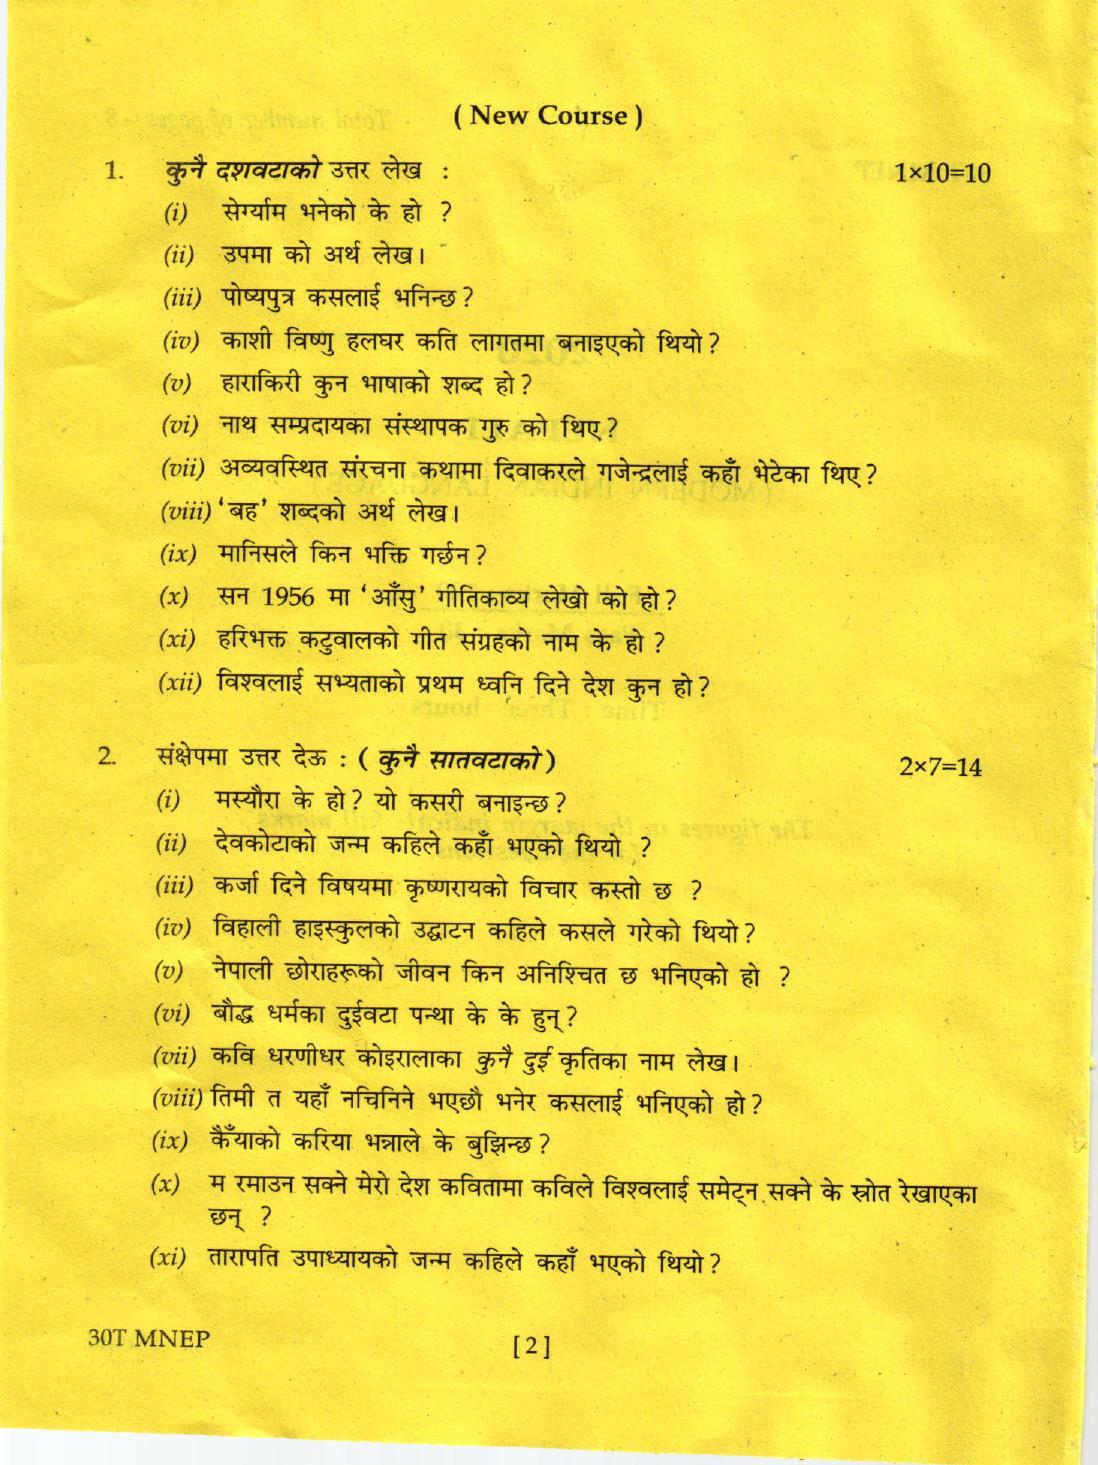 ( New Course )
1. कुनै दशवटाको उत्तर लेख : 1×10=10
(i) सेर्ग्याम भनेको के हो ?
(ii) उपमा को अर्थ लेख।
(iii) पोष्यपुत्र कसलाई भनिन्छ ?
(iv) काशी विष्णु हलघर कति लागतमा बनाइएको थियो ?
(v) हाराकिरी कुन भाषाको शब्द हो ?
(vi) नाथ सम्प्रदायका संस्थापक गुरु को थिए ?
(vii) अव्यवस्थित संरचना कथामा दिवाकरले गजेन्द्रलाई कहाँ भेटेका थिए ?
(viii) ‘बह’ शब्दको अर्थ लेख।
(ix) मानिसले किन भक्ति गर्छन ?
(x) सन 1956 मा ‘आँसु’ गीतिकाव्य लेखो को हो ?
(xi) हरिभक्त कटुवालको गीत संग्रहको नाम के हो ?
(xii) विश्वलाई सभ्यताको प्रथम ध्वनि दिने देश कुन हो ?
2. संक्षेपमा उत्तर देऊ : ( कुनै सातवटाको ) 2×7=14
(i) मस्यौरा के हो ? यो कसरी बनाइन्छ ?
(ii) देवकोटाको जन्म कहिले कहाँ भएको थियो ?
(iii) कर्जा दिने विषयमा कृष्णरायको विचार कस्तो छ ?
(iv) विहाली हाइस्कुलको उद्घाटन कहिले कसले गरेको थियो ?
(v) नेपाली छोराहरूको जीवन किन अनिश्चित छ भनिएको हो ?
(vi) बौद्ध धर्मका दुईवटा पन्था के के हुन् ?
(vii) कवि धरणीधर कोइरालाका कुनै दुई कृतिका नाम लेख।
(viii) तिमी त यहाँ नचिनिने भएछौ भनेर कसलाई भनिएको हो ?
(ix) कैँयाको करिया भन्नाले के बुझिन्छ ?
(x) म रमाउन सक्ने मेरो देश कवितामा कविले विश्वलाई समेट्न सक्ने के स्रोत रेखाएका
छन् ?
(xi) तारापति उपाध्यायको जन्म कहिले कहाँ भएको थियो ?
30T MNEP [ 2 ]